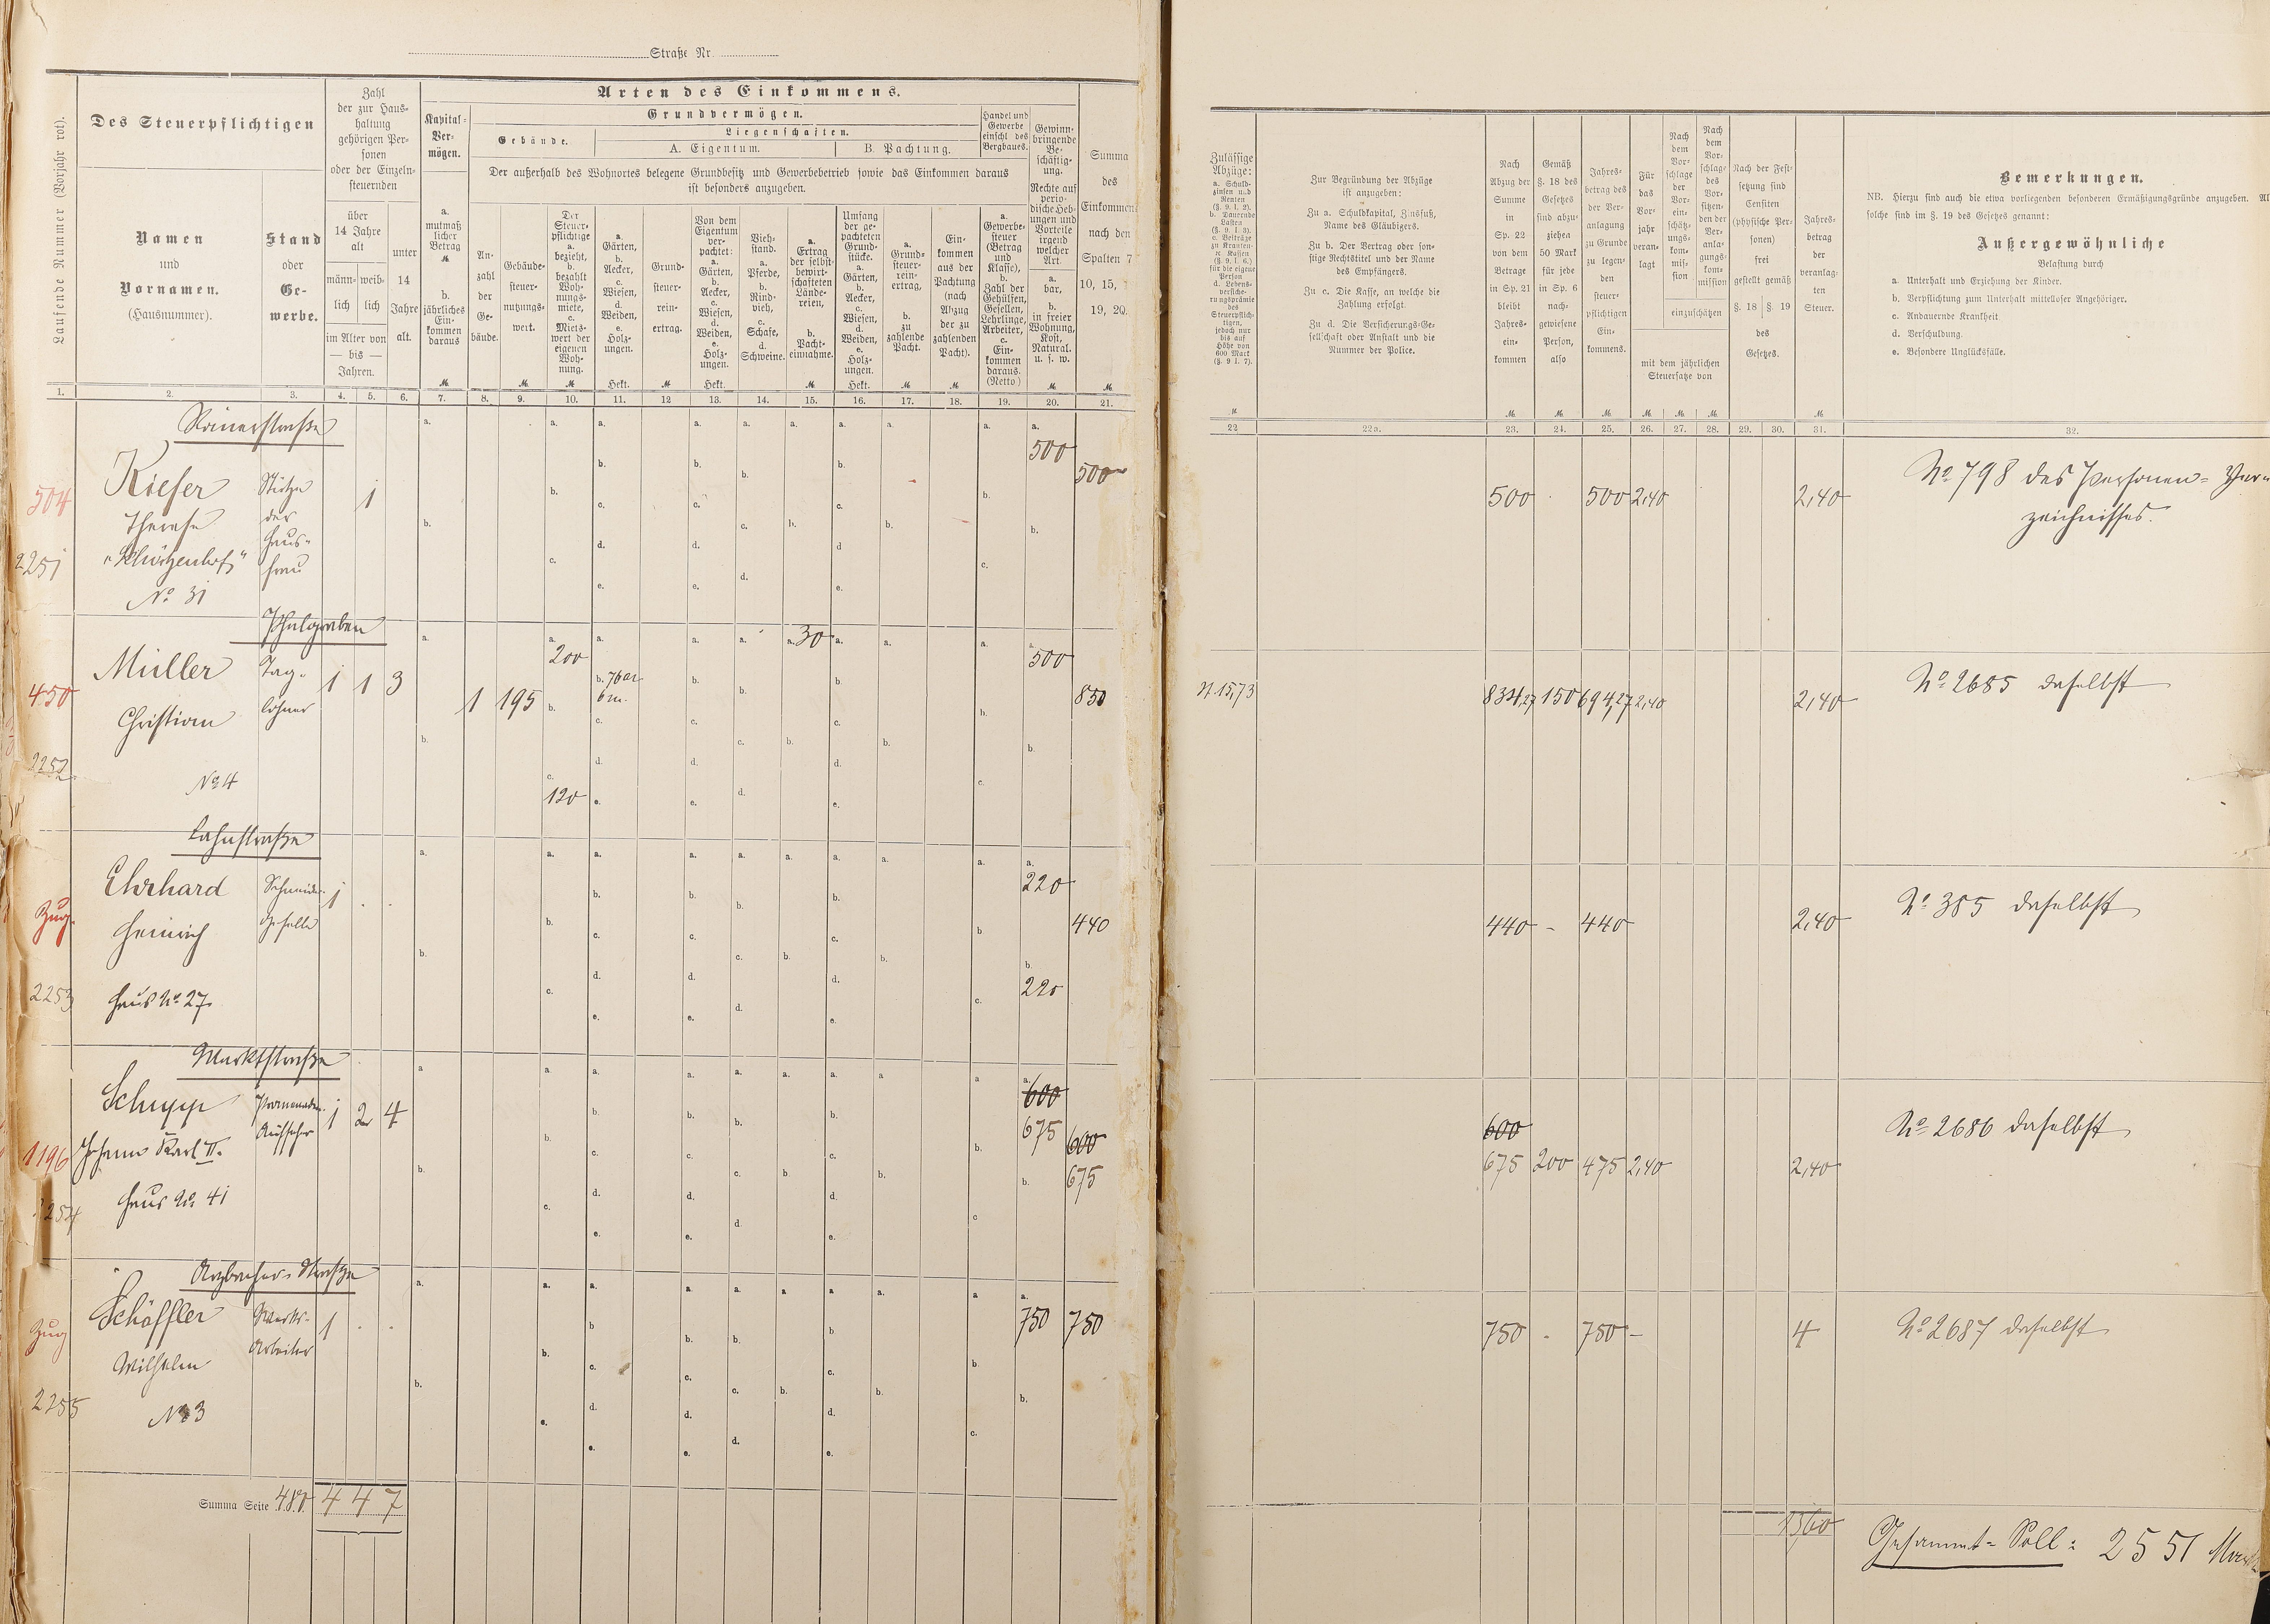 Straße Nr.
Laufende Nummer (Vorjahr rot).
Des Steuerpflichtigen
Namen
und
Vornamen.
(Hausnummer).
Stand
oder
Ge-
werbe.
Zahl
der zur Haus-
haltung
gehörigen Per-
sonen
oder der Einzeln-
steuernden
über
14 Jahre
alt
männ-
lich
weib-
lich
im Alter von
— bis —
Jahren.
unter
14
Jahre
alt.
Arten des Einkommens.
Kapital-
Ver-
mögen.
a.
mutmaß
licher
Betrag
M
b.
jährliches
Ein-
kommen
daraus
Grundvermögen.
Gebäude.
Liegenschaften.
A. Eigentum.
B. Pachtung.
Handel und
Gewerbe
einschl des
Bergbaues.
Gewinn-
bringende
Be-
schäftig-
ung.
Rechte auf
perio-
dische Heb-
ungen und
Vorteile
irgend
welcher
Art.
a.
bar,
b.
in freier
Wohnung,
Kost,
Natural.
u. s. w.
Der außerhalb des Wohnortes belegene Grundbesitz und Gewerbebetrieb sowie das Einkommen daraus
ist besonders anzugeben.
An-
zahl
der
Ge-
bäude.
Gebäude-
steuer-
nutzungs-
wert.
Der
Steuer-
pflichtige
a.
bezieht,
b.
bezahlt
Woh-
nungs-
miete,
c.
Miets-
wert der
eigenen
Woh-
nung.
a.
Gärten,
b.
Aecker,
c.
Wiesen,
d.
Weiden,
e.
Holz-
ungen.
Hekt.
Grund-
steuer-
rein-
ertrag.
Von dem
Eigentum
ver-
pachtet:
a.
Gärten,
b.
Aecker,
c.
Wiesen,
d.
Weiden,
e.
Holz-
ungen.
Hekt.
Vieh-
stand.
a.
Pferde,
b.
Rind-
vieh,
c.
Schafe,
d.
Schweine.
a.
Ertrag
der selbst-
bewirt-
schafteten
Lände-
reien,
b.
Pacht-
einnahme.
Umfang
der ge-
pachteten
Grund-
stücke.
a.
Gärten,
b.
Aecker,
c.
Wiesen,
d.
Weiden,
e.
Holz-
ungen.
Hekt.
a.
Grund-
steuer-
rein-
ertrag,
b.
zu
zahlende
Pacht.
Ein-
kommen
aus der
Pachtung
(nach
Abzug
der zu
zahlenden
Pacht).
a.
Gewerbe-
steuer
(Betrag
und
Klasse),
b.
Zahl der
Gehülfen,
Gesellen,
Lehrlinge,
Arbeiter,
c.
Ein-
kommen
daraus.
(Netto)
Summa
des
Einkommen
nach den
Spalten 7
10, 15,
19, 20.
1. 2. 3. 4. 5. 6. 7. 8. 9. 10. 11. 12 13. 14. 15. 16. 17. 18. 19. 20. 21.
504
2251
Kiefer
Therese
"Schützenhof"
No 31
Stütze
der
Haus-
frau
1
500
500
Pfahlgraben
450
2252
Müller
Christian
No 4
Tag-
löhner
1 1 3
1 195
200
120
76 ar
6 m.
30
500
850
Lahnstraße
Zug.
2253
Ehrhard
Heinrich
Haus No 27
Schneider-
Geselle
1 . .
220
220
440
Marktstraße
1196
2254
Schupp
Johann Karl II.
Haus No 41
Promenaden-
Aufseher
1 2 4
600
675
600
675
Arzbacher-Straße
Zug
2255
Schöffler
Wilhelm
No 3
Werks-
Arbeiter
1 . .
750
750
Summa Seite 480. 4 4 7
Zulässige
Abzüge:
a. Schuld-
zinsen und
Renten
(§. 9. I. 2).
b. Dauernde
Lasten
(§. 9. I. 3).
c. Beiträge
zu Kranken-
rc Kassen
(§. 9. I. 6.)
für die eigene
Person
d. Lebens-
versiche-
rungsprämie
des
Steuerpflich-
tigen,
jedoch nur
bis auf
Höhe von
600 Mark
(§. 9 I. 7).
Zur Begründung der Abzüge
ist anzugeben:
Zu a. Schuldkapital, Zinsfuß,
Name des Gläubigers.
Zu b. Der Vertrag oder son-
stige Rechtstitel und der Name
des Empfängers.
Zu c. Die Kasse, an welche die
Zahlung erfolgt.
Zu d. Die Versicherungs-Ge-
sellschaft oder Anstalt und die
Nummer der Police.
Nach
Abzug der
Summe
in
Sp. 22
von dem
Betrage
in Sp. 21
bleibt
Jahres-
ein-
kommen
Gemäß
§. 18 des
Gesetzes
sind abzu-
ziehen
50 Mark
für jede
in Sp. 6
nach-
gewiesene
Person,
also
Jahres-
betrag des
der Ver-
anlagung
zu Grunde
zu legen-
den
steuer-
pflichtigen
Ein-
kommens.
Für
das
Vor-
jahr
veran-
lagt
Nach
dem
Vor-
schlage
der
Vor-
ein-
schätz-
ungs-
kom-
mis-
sion
Nach
dem
Vor-
schlage
des
Vor-
sitzen-
den der
Ver-
anla-
gungs-
kom-
mission
einzuschätzen
mit dem jährlichen
Steuersatze von
Nach der Fest-
setzung sind
Censiten
(physische Per-
sonen)
frei
gestellt gemäß
§. 18 §. 19
des
Gesetzes.
Jahres-
betrag
der
veranlag-
ten
Steuer.
Bemerkungen.
NB. Hierzu sind auch die etwa vorliegenden besonderen Ermäßigungsgründe anzugeben. Al
solche sind im §. 19 des Gesetzes genannt:
Außergewöhnliche
Belastung durch
a. Unterhalt und Erziehung der Kinder.
b. Verpflichtung zum Unterhalt mittelloser Angehöriger.
c. Andauernde Krankheit
d. Verschuldung.
e. Besondere Unglücksfälle.
22 22a. 23. 24. 25. 26. 27. 28. 29. 30. 31. 32.
500 . 500 2,40 2,40 No 798 des Personen-Ver-
zeichnisses.
15,73 834,27 150 694,27 2,40 2,40 No 2685 daselbst
440 - 440 2,40 No 385 daselbst
600
675 200 475 2,40 2,40 No 2686 daselbst
750 - 750 - 4 No 2687 daselbst
1360
Gesammt-Soll: 2551 Mark